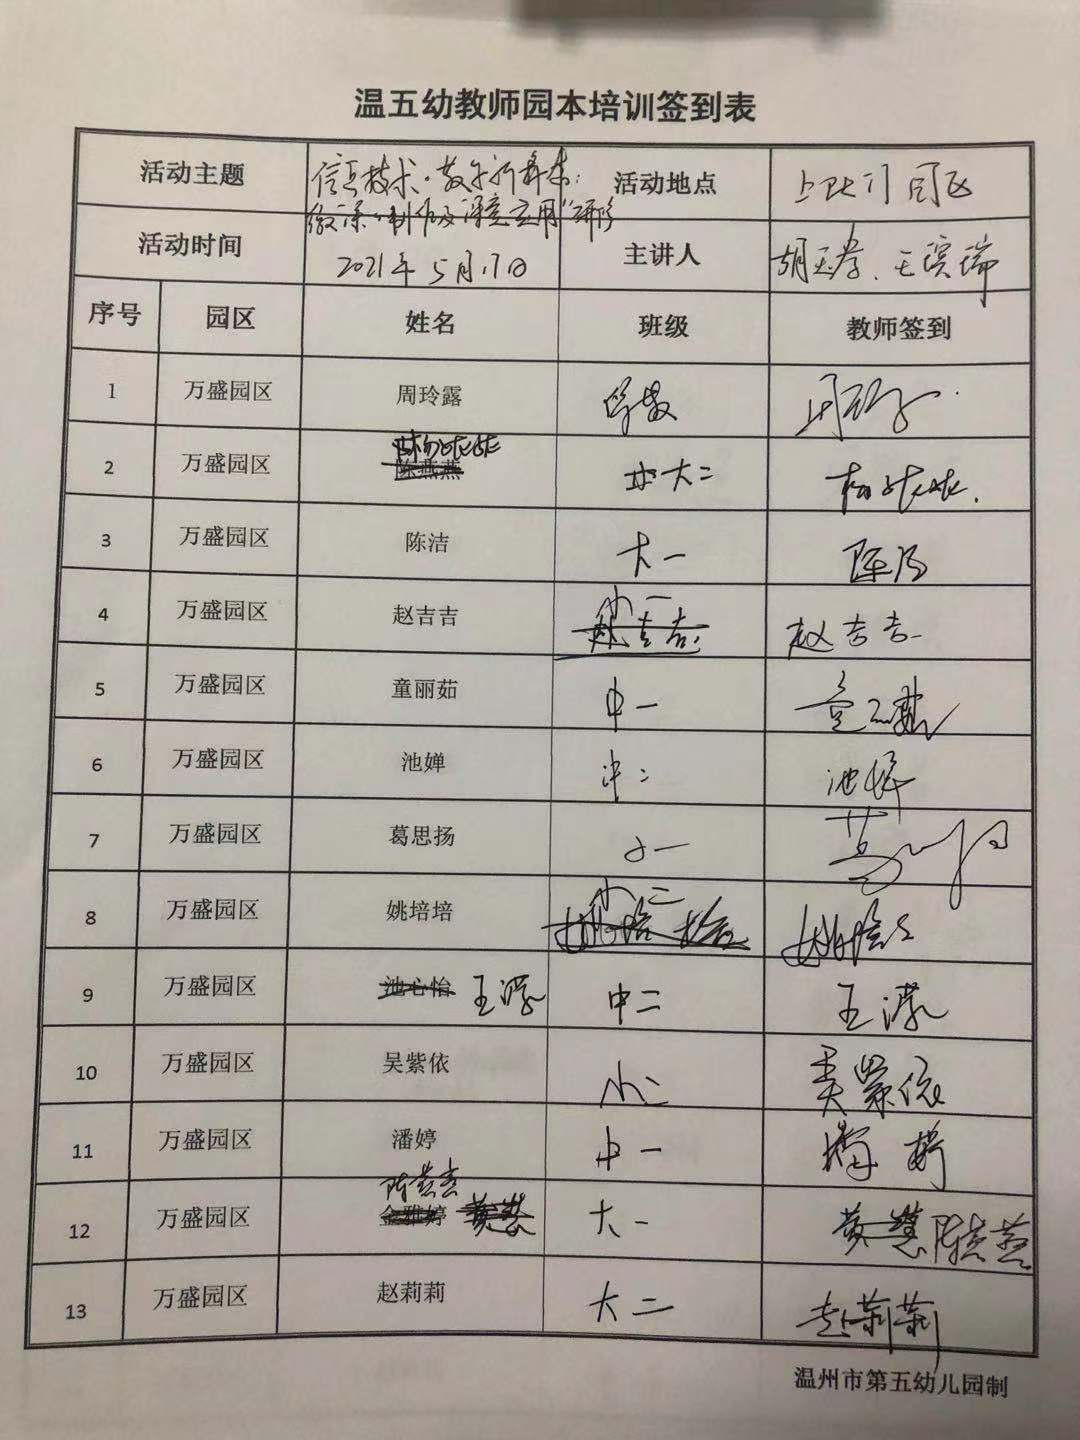 温五幼教师园本培训签到表
活动主题 信息技术·教学新样态： 活动地点
"微课"制作及深度应用"研修
活动时间 2021年5月17日 主讲人
序号 园区 姓名 班级 教师签到
1 万盛园区 周玲露
2 万盛园区 陈燕燕 大二
3 万盛园区 陈洁 大一 陈洁
4 万盛园区 赵吉吉 小一 赵吉吉 赵吉吉
5 万盛园区 童丽茹 中一 童丽茹
6 万盛园区 池婵 中二 池婵
7 万盛园区 葛思扬 小一 葛思扬
8 万盛园区 姚培培 小二 姚培培 姚培培
9 万盛园区 池心怡 王潆 中二 王潆
10 万盛园区 吴紫依 小二 吴紫依
11 万盛园区 潘婷 中一 潘婷
12 万盛园区 金雅婷 黄慧 陈燕燕 大一 黄慧 陈燕燕
13 万盛园区 赵莉莉 大二 赵莉莉
温州市第五幼儿园制